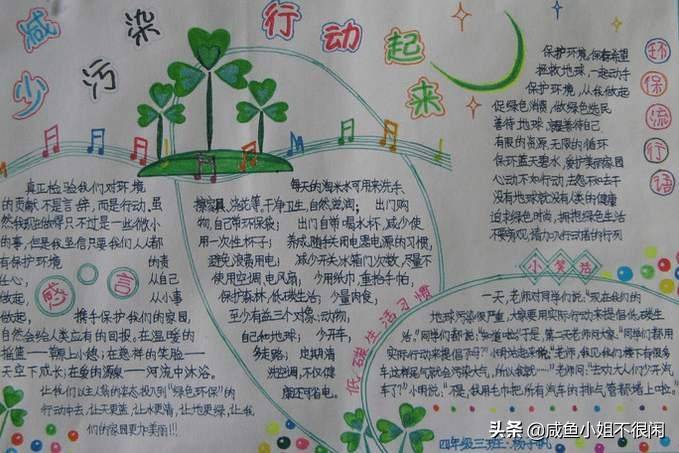 减少污染
行动起来
真正检验我们对环境
的贡献不是言辞，而是行动，虽
然我现在做得只不过是一些微小
的事，但是我坚信只要我们人人都
有保护环境的责
任心，从自己
做起，从小事
做起，携手保护我们的家园，
自然会给人类应有的回报。在温暖的
摇篮——草原上小憩；在慈祥的笑脸——
天空下成长；在爱的源泉——河流中沐浴。
让我们以主人翁的姿态投入到“绿色环保”的
行动中去，让天更蓝，让水更清，让地更绿，让我
们的家园更加美丽!!!
感言
每天的淘米水可用来洗手、
擦家具、浇花等。干净卫生，自然滋润；
出门购
物，自己带环保袋；出门自带喝水杯，减少使
用一次性杯子；养成随手关用电器电源的习惯，
避免浪费用电；减少开关冰箱门次数，尽量不
使用空调、电风扇；少用纸巾，重拾手帕，
保护森林，低碳生活；少量肉食，
至少有益三个对象：动物，
自己和地球；少开车，
多走路；定期清
洗空调，不仅健
康还可省电。
低碳生活习惯
环保流行语
保护环境，保存希望
拯救地球，一起动手
保护环境，从我做起
促绿色消费，做绿色选民
善待地球，就是善待自己
有限的资源，无限的循环
保环蓝天碧水，爱护美丽家园
心动不如行动，去怨不如去干
没有地球就没有人类的健康
迫求绿色时尚，拥抱绿色生活
不要旁观，请加入行动者的行列
小笑话
一天，老师对同学们说：“现在我们的
地球污染很严重，大家要用实际行动来提倡低碳生
活。”同学们都说：“知道啦！”于是，第二天老师问大家：“同学们都用
实际行动来提倡了吗？”小明站起来说：“老师，我见我们楼下有很多
车，这样尾气就会污染大气，所以我就……”老师问：“去劝大人们少开汽
车了？”小明说：“不是，我用毛巾把所有汽车的排气管都堵上啦。”
四年级三班：
头条 @咸鱼小姐不很闲